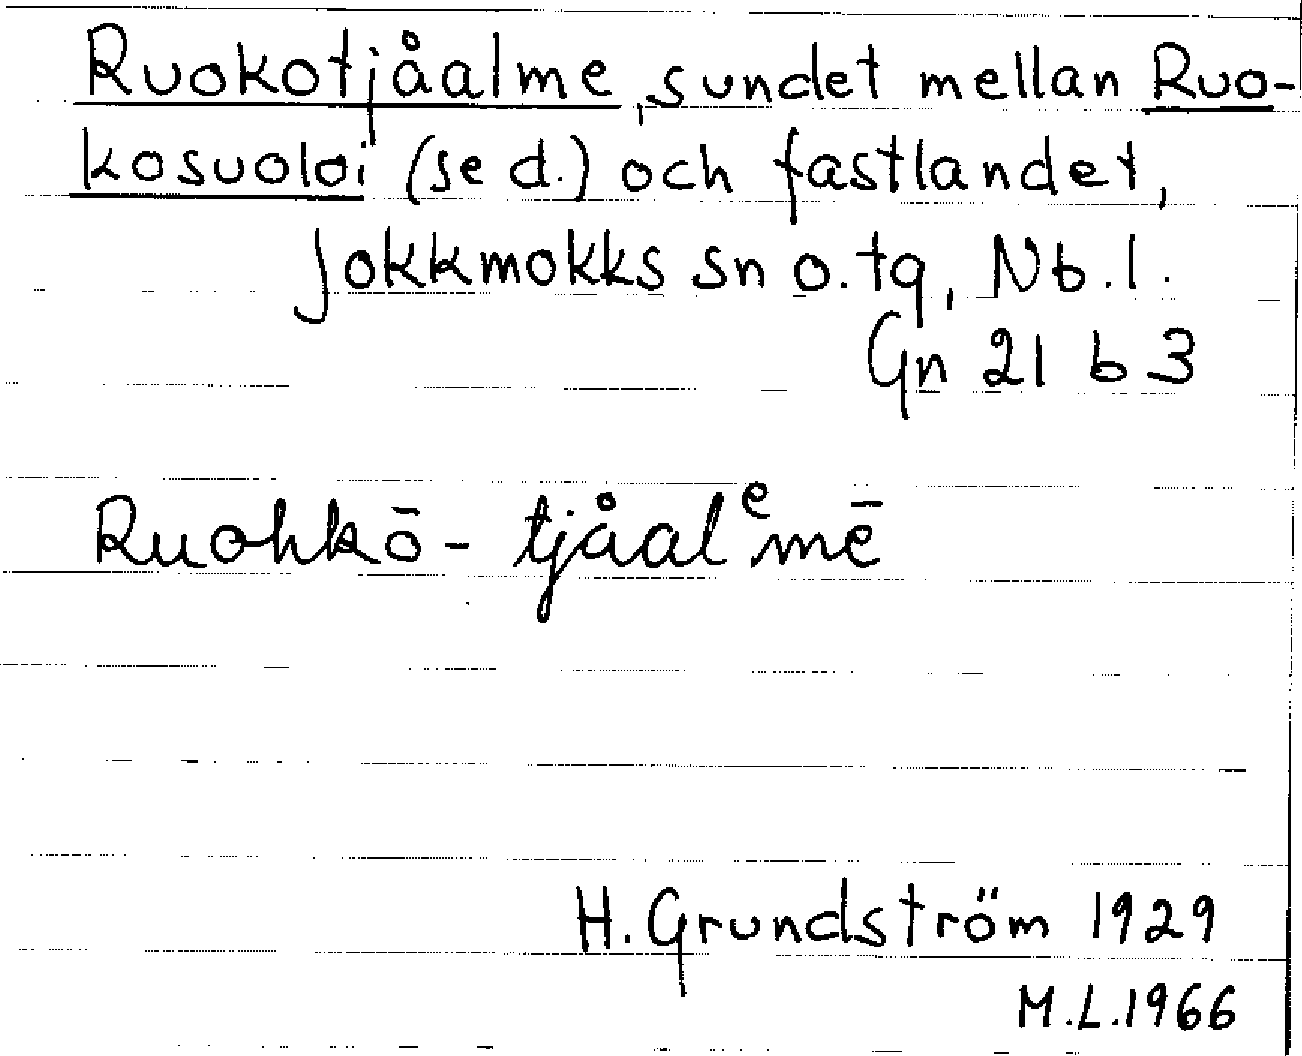 Ruokotjåalme, sundet mellan Ruo-
kosuoloi (se d.) och fastlandet,
Jokkmokks sn o. tg, Nb. l.
Gn 21 b 3
Ruohkō- tjåalᵉmē
H. Grundström 1929
M.L. 1966